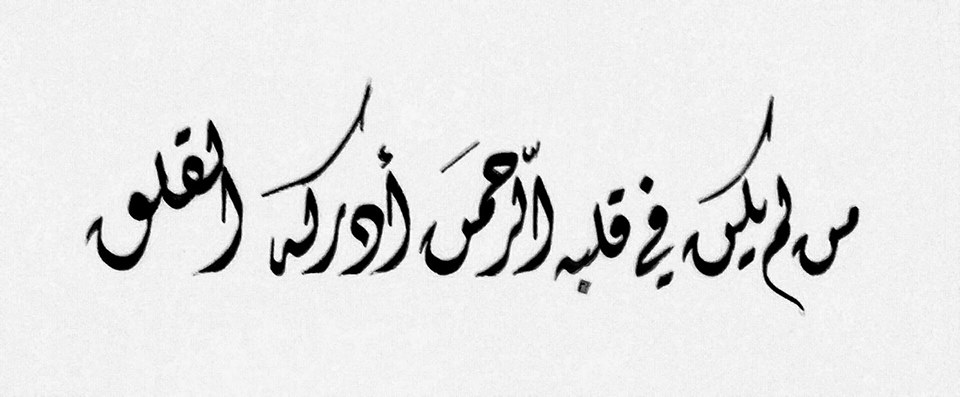 من لم يكن في قلبه الرّحمن أدركه القلق